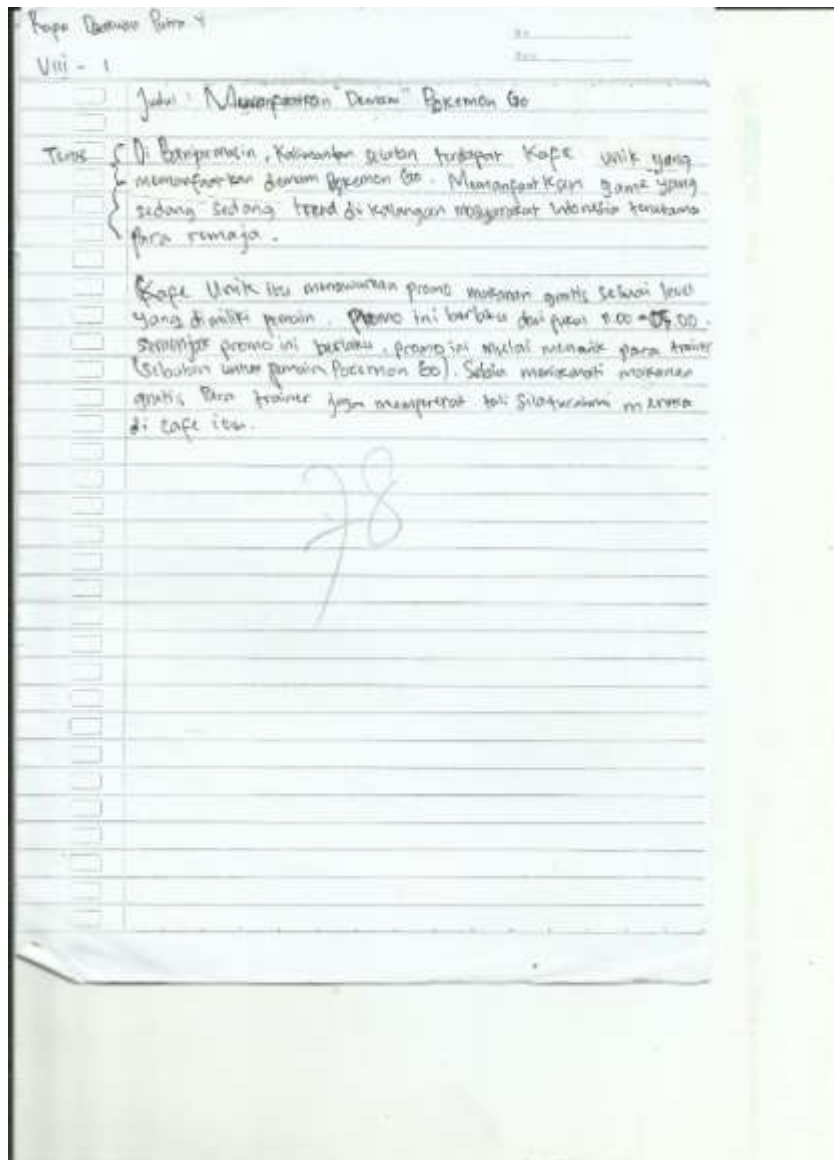 Putra Y
VIII - 1
Judul : Memanfaatkan "Demam" Pokemon Go
Teras
Di Banjarmasin, Kalimantan Selatan terdapat Kafe unik yang
memanfaatkan demam Pokemon Go. Memanfaatkan game yang
sedang sedang trend di kalangan masyarakat Indonesia terutama
para remaja.
Kafe Unik itu menawarkan promo makanan gratis sesuai level
yang dimiliki pemain. Promo ini berlaku dari pukul
promo ini berlaku, promo ini mulai menarik para trainer
(sebutan untuk pemain Pocemon Go). Selain menikmati makanan
gratis Para trainer juga mempererat tali Silaturahmi mereka
di cafe itu.
78